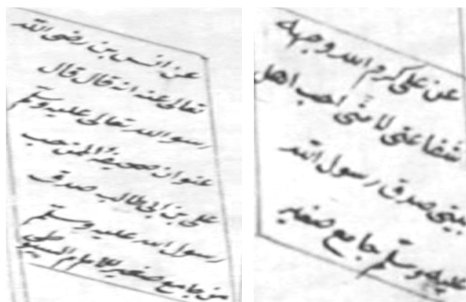 عن على كرم الله وجهه
شفاعتى لامتى احب اهل
بيتى صدق رسول الله
عليه وسلم جامع صغير
عن انس بن رضى الله
تعالى عنه انه قال قال
رسول الله تعالى عليه وسلم
عنوان صحيفة المؤمن حب
على بن ابى طالب صدق
رسول الله عليه وسلم
من جامع صغير للامام السيوطى